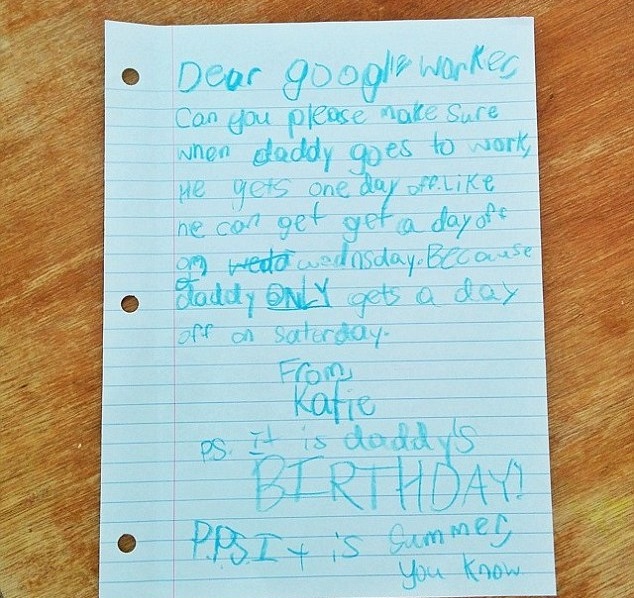 Dear google worker,
Can you please make sure
when daddy goes to work,
He gets one day off. Like
he can get get a day off
on wednsday. BECause
daddy ONLY gets a day
off on saturday.
From,
Katie
PS. It is daddy's
BIRTHDAY!
P.P.S. It is summer,
you know